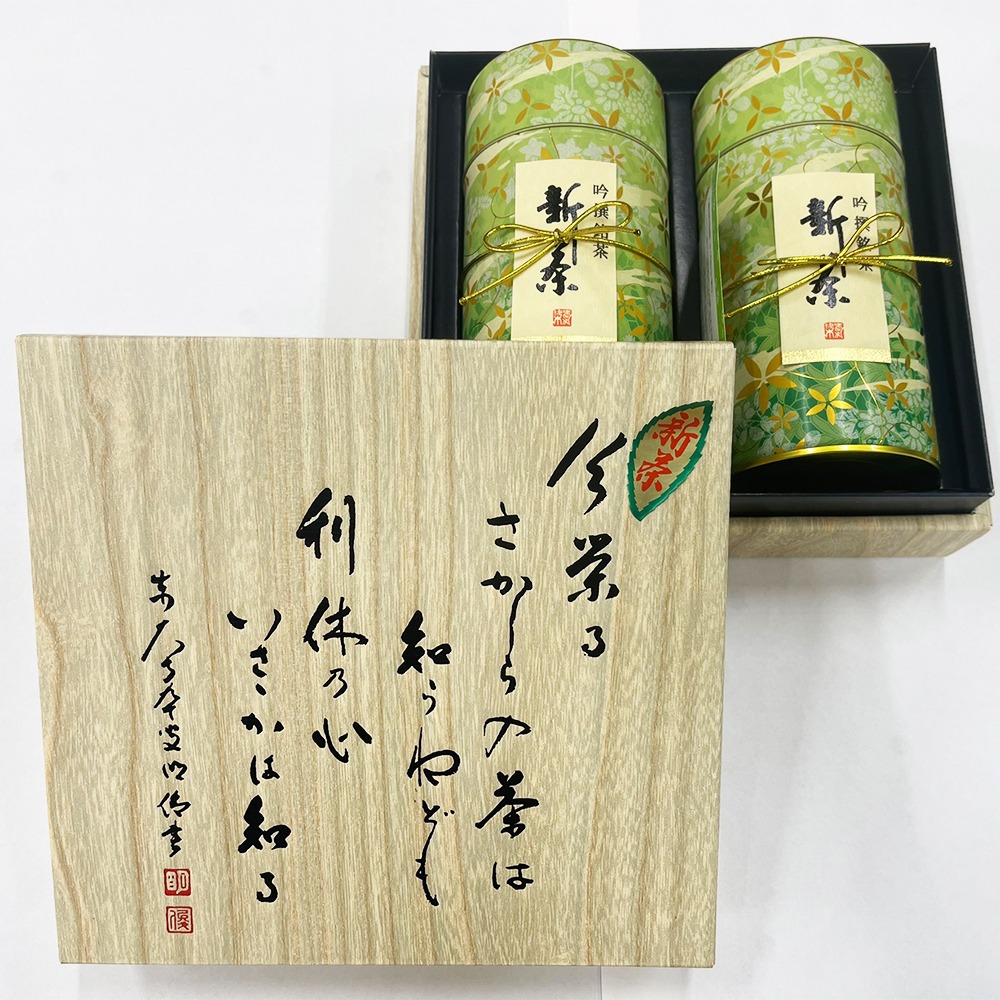 吟撰銘茶
新茶
吟撰銘茶
新茶
新茶
今栄る
さかしらの茶は
知らねども
利休乃心
いさゝかは知る